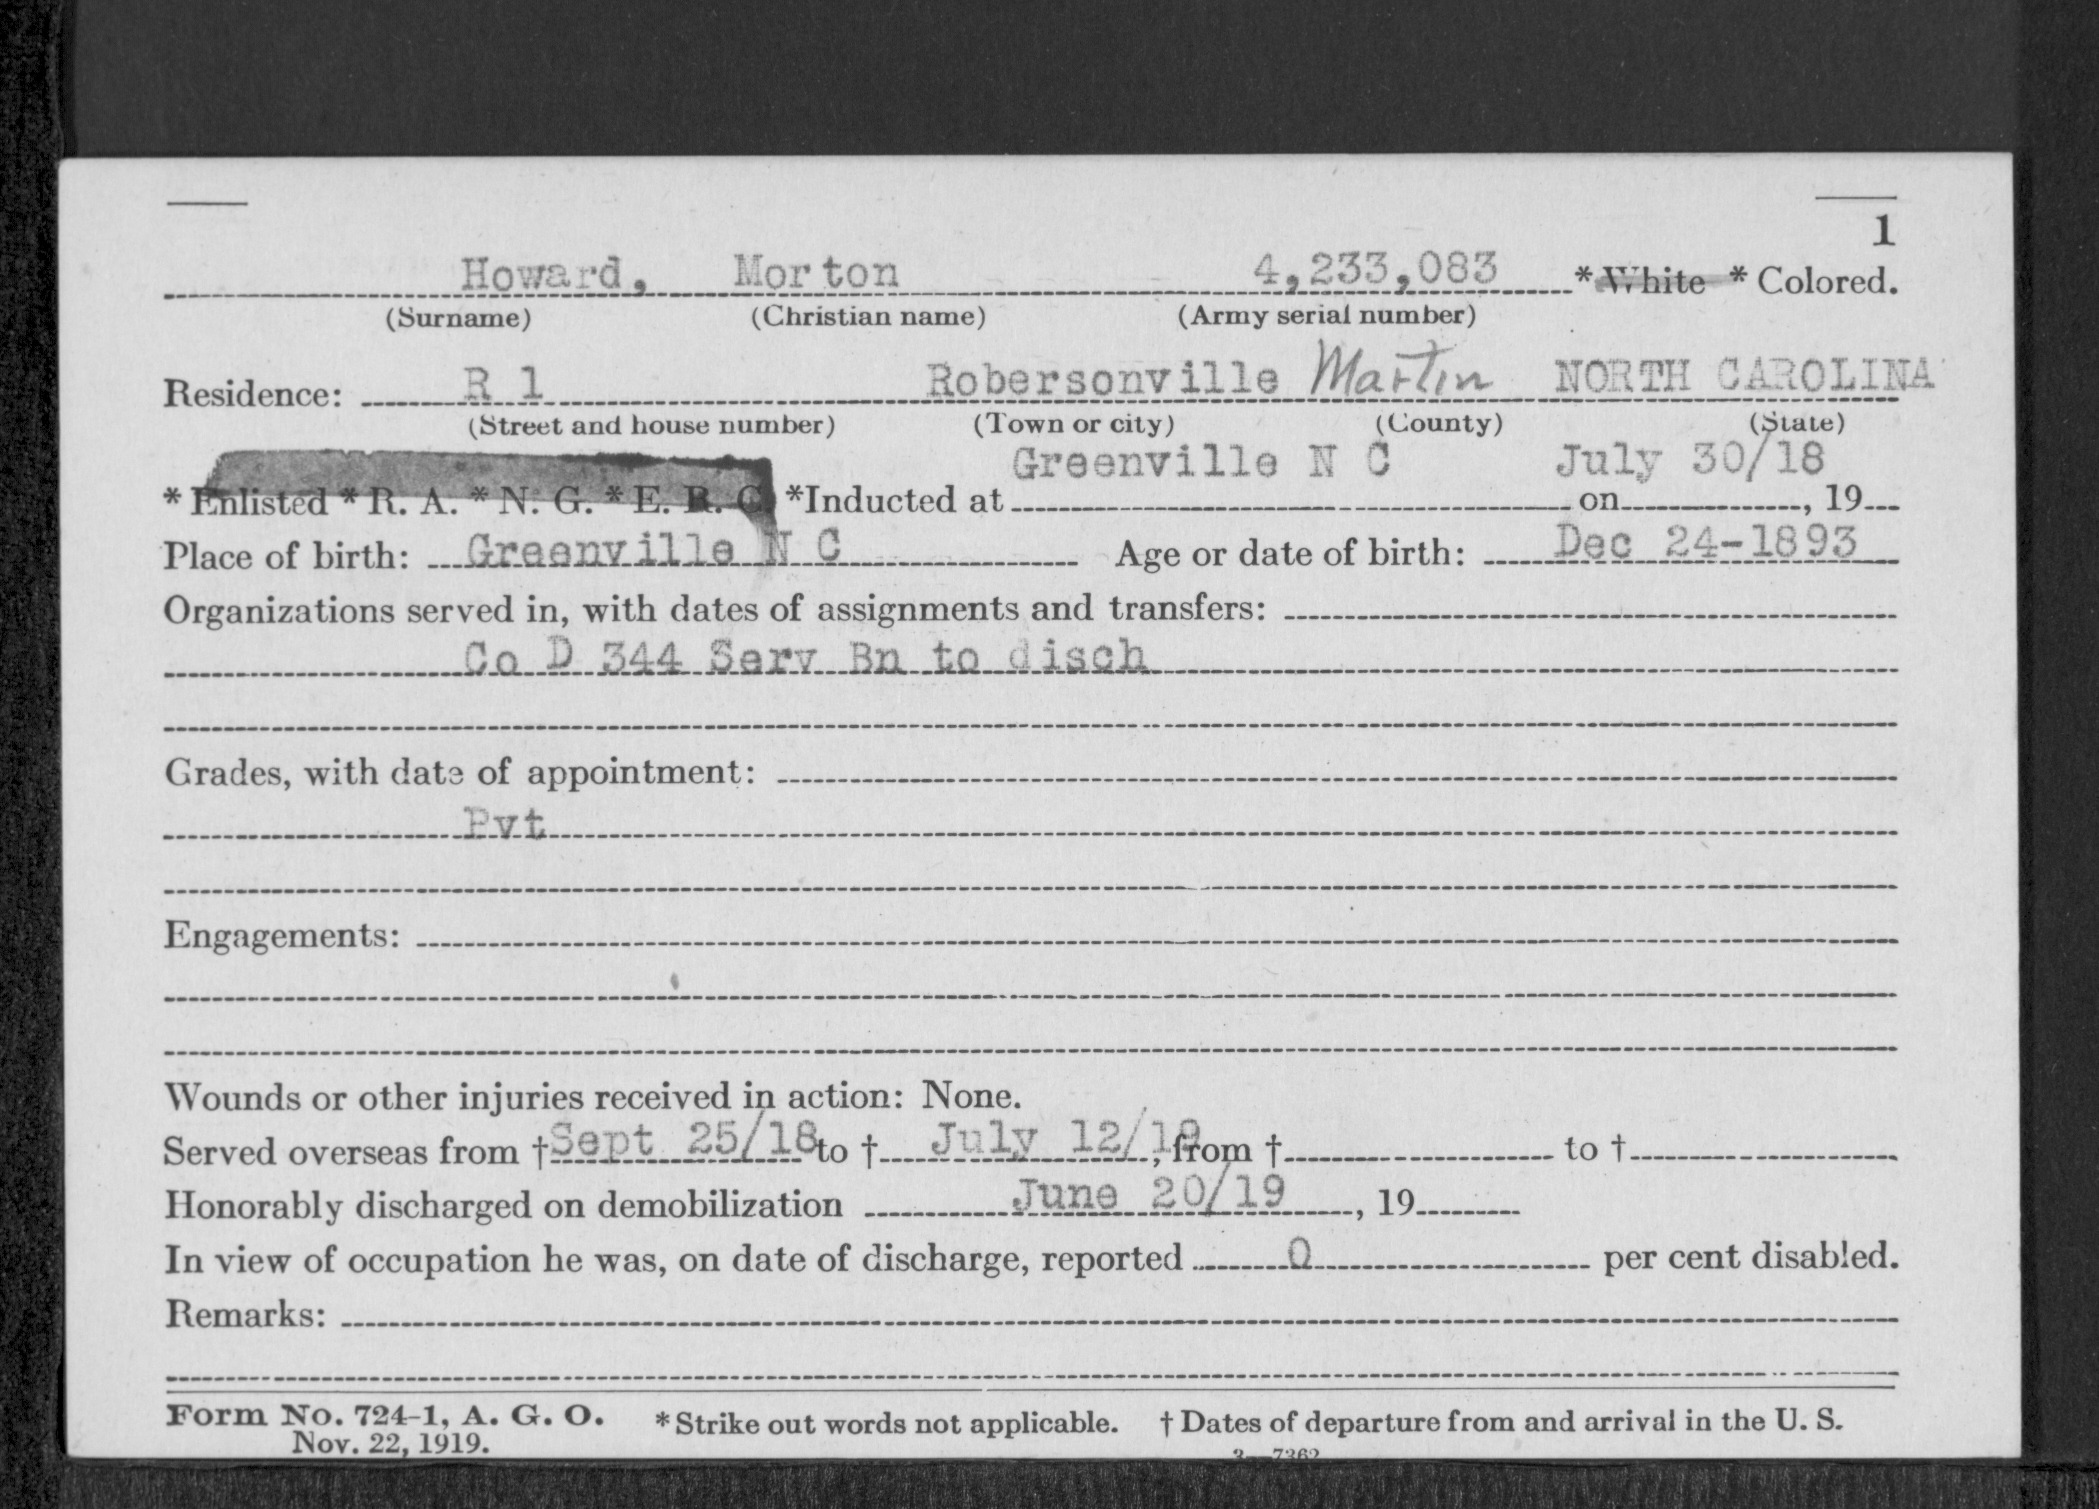 1
Howard, Morton 4,233,083 * White * Colored.
(Surname) (Christian name) (Army serial number)
Residence: R 1 Robersonville Martin NORTH CAROLINA
(Street and house number) (Town or city) (County) (State)
Greenville N C July 30/18
* Enlisted * R. A. * N. G. * E. R. C. *Inducted at on , 19
Place of birth: Greenville N C Age or date of birth: Dec 24-1893
Organizations served in, with dates of assignments and transfers:
Co D 344 Serv Bn to disch
Grades, with date of appointment:
Pvt
Engagements:
Wounds or other injuries received in action: None.
Served overseas from † Sept 25/18 to † July 12/19, from † to †
Honorably discharged on demobilization June 20/19, 19
In view of occupation he was, on date of discharge, reported 0 per cent disabled.
Remarks:
Form No. 724-1, A. G. O. * Strike out words not applicable. † Dates of departure from and arrival in the U. S.
Nov. 22, 1919. 3—7362